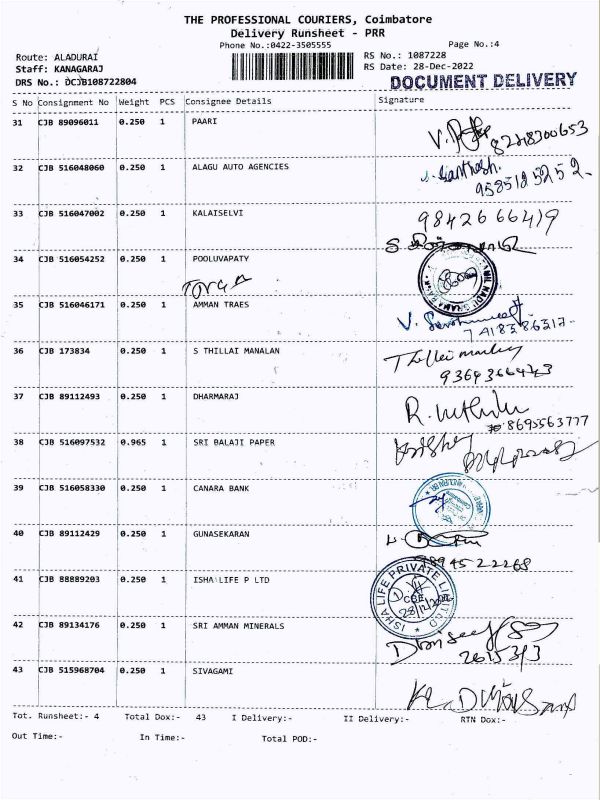 THE PROFESSIONAL COURIERS, Coimbatore
Delivery Runsheet - PRR
Phone No.:0422-3505555 Page No.:4
Route: ALADURAI RS No.: 1087228
Staff: KANAGARAJ RS Date: 28-Dec-2022
DRS No.: DCJB108722804 DOCUMENT DELIVERY
S No Consignment No Weight PCS Consignee Details Signature
31 CJB 89096011 0.250 1 PAARI
8248300653
32 CJB 516048060 0.250 1 ALAGU AUTO AGENCIES
9585125252
33 CJB 516047002 0.250 1 KALAISELVI 9842666419
34 CJB 516054252 0.250 1 POOLUVAPATY
35 CJB 516046171 0.250 1 AMMAN TRAES
36 CJB 173834 0.250 1 S THILLAI MANALAN
37 CJB 89112493 0.250 1 DHARMARAJ
8695563777
38 CJB 516097532 0.965 1 SRI BALAJI PAPER
39 CJB 516058330 0.250 1 CANARA BANK
40 CJB 89112429 0.250 1 GUNASEKARAN
9894522268
41 CJB 88889203 0.250 1 ISHA LIFE P LTD
ISHA LIFE PRIVATE LIMITED
CBE
42 CJB 89134176 0.250 1 SRI AMMAN MINERALS
43 CJB 515968704 0.250 1 SIVAGAMI
Tot. Runsheet:- 4 Total Dox:- 43 I Delivery:- II Delivery:- RTN Dox:-
Out Time:- In Time:- Total POD:-